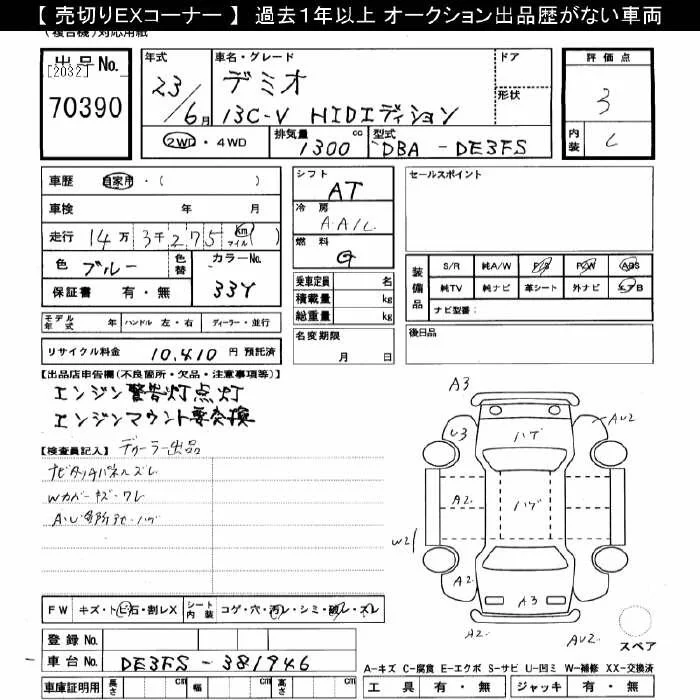 【 売切りEXコーナー 】 過去１年以上 オークション出品歴がない車両
(複合機)対応用紙
出品No.
[2032]
70390
年式
23/6月
車名・グレード
デミオ
13C-V HIDエディション
ドア
形状
評価点
3
内装
C
2WD・4WD
排気量
1300 cc
型式
DBA - DE3FS
車歴 自家用・( )
車検 年 月
走行 14万3千275 km マイル ( )
色 ブルー 色替
カラーNo. 33Y
保証書 有・無
シフト
AT
冷房
A.A/C
燃料
G
乗車定員 名
積載量 kg
総重量 kg
セールスポイント
装備品
S/R 純A/W P/S P/W ABS
純TV 純ナビ 革シート 外ナビ エアB
ナビ型番:
モデル年式 年 ハンドル 左・右 ディーラー・並行
リサイクル料金 10,410 円 預託済
名変期限
月 日
後日品
【出品店申告欄(不良箇所・欠品・注意事項等)】
エンジン警告灯点灯
エンジンマウント要交換
【検査員記入】 ディーラー出品
ナビタッチパネルズレ
Wカバーキズ・ワレ
A・U多所 ハゲ
A3
U3
ハゲ
AU2
A2
ハゲ
A2
W2
A2
A3
A2
A2.
AU2
スペア
FW キズ・トビ石・割レX
シート内装 コゲ・穴・汚レ・シミ・破レ・スレ
登録No.
車台No. DE3FS - 381946
車庫証明用 長さ cm 幅 cm 高さ cm
A-キズ C-腐食 E-エクボ S-サビ U-凹ミ W-補修 XX-交換済
工具 有・無 ジャッキ 有・無